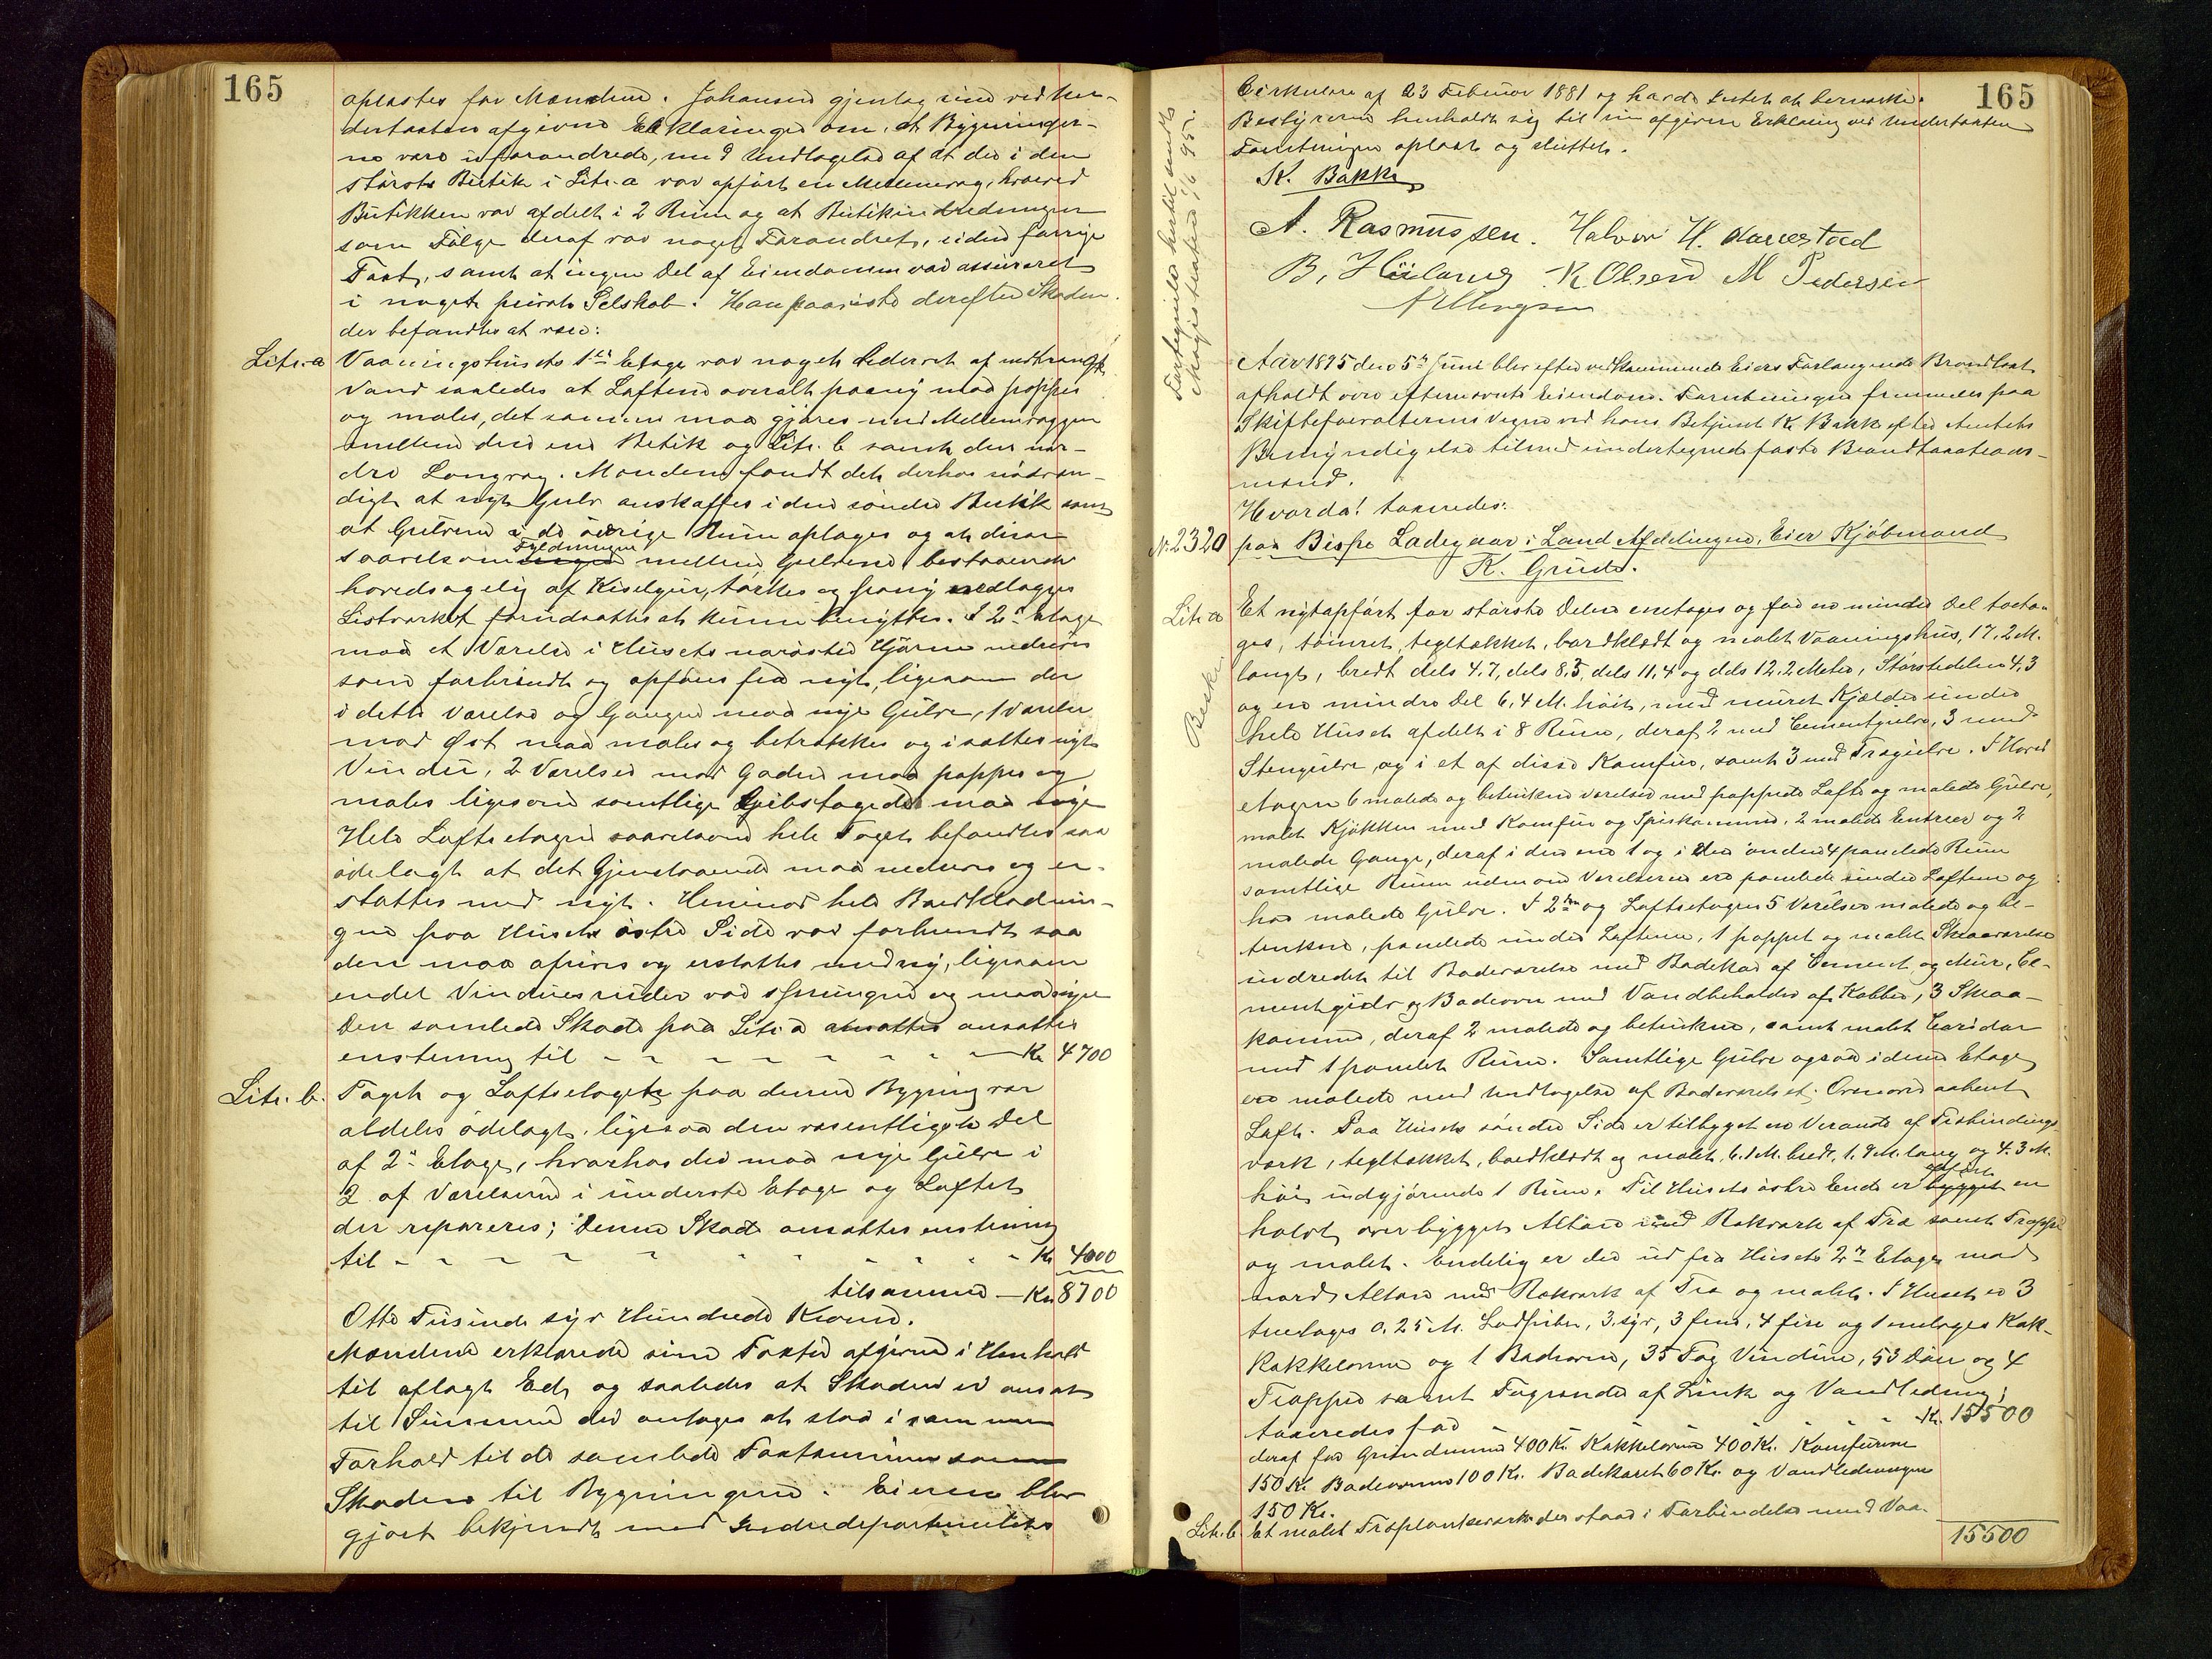 165
oplæstes for Mændene. Johansen gjentog sine ved Un-
dertaxten afgivne Erklæringer om, at Bygninger-
ne vare uforandrede, med Undtagelse af at der i den
største Butik i Litr. a var opført en Mellemvæg, hvorved
Butikken var afdelt i 2 Rum og at Butikindredningen
som Følge deraf var noget Forandret, siden forrige
Taxt, samt at ingen Del af Eiendommen var assureret
i noget privat Selskab. Han paaviste derefter Skaden
der befandtes at være:
Litr. a Vaaningshusets 1ste Etage var noget lederet af indtrængt
Vand saaledes at Loftene overalt paany maa pappes
og males, det samme maa gjøres med Mellemvæggen
mellem den ene Butik og Litr. b samt den nor-
dre Langvæg. Mændene fandt det derhos nødven-
digt at nyt Gulv anskaffes i den søndre Butik samt
at Gulvene i de øvrige Rum optages og at disse
saavelsom Fyldningen mellem Gulvene bestaaende
hovedsagelig af Kiselgur, tørkes og paany nedlægges
Listværket forudsattes at kunne benyttes. I 2den Etage
maa et Værelse i Husets nordøstre Hjørne nedrives
som forbrændt og opføres fra nyt, ligesom der
i dette Værelse og Gangen maa nye Gulve, 1 Værelse
mod Øst maa males og betrækkes og isættes nyt
Vindu, 2 Værelser mod Gaden maa pappes og
males ligesom samtlige Gibstage der maa nye
Hele Loftsetagen saavelsom hele Taget befandtes saa
ødelagt at det Gjenstaaende maa nedrives og er-
stattes med nyt. Henimod hele Bordklædnin-
gen paa Husets østre Side var forbrændt saa
den maa afrives og erstattes med ny, ligesom
endel Vinduesruder var sprungne og maa nye
Den samlede Skade paa Litr. a ansattes ansattes
enstemmig til Kr 4700
Litr. b. Taget og Loftsetagen paa denne Bygning var
aldeles ødelagt, ligesaa den væsentligste Del
af 2den Etage, hvorhos der maa nye Gulve i
2 af Værelserne i underste Etage og Loftet
der repareres; Denne Skade ansattes enstemmig
til Kr 4000
tilsammen - Kr 8700
Otte Tusinde syv Hundrede Kroner.
Mændene erklærede sine Taxter afgivne i Henhold
til aflagt Ed, og saaledes at Skaden er ansat
til Summer der antages at staa i samme
Forhold til de samlede Taxtsummer som
Skaden til Bygningerne. Eieren blev
gjort bekjendt med Indredepartementets
165
Cirkulære af 23 Februar 1881 og havde intet at bemærke.
Bestyreren henholdt sig til sin afgivne Erklæring ved Undertaxten
Forretningen oplæst og sluttet.
K. Bakke
A. Rasmussen. Halvor H.
B. K Olsen M Pedersen
Aar 1895 den 5te Juni blev efter vedkommende Eiers Forlangende Brandtaxt
afholdt over efternævnte Eiendom. Forretningen fremmedes paa
Skifteforvalterens Vegne ved hans Betjent K. Bakke efter Amtets
Bemyndigelse tilmed undertegnede faste Brandtaxations-
mænd.
Hvorda! taxeredes:
No. 2320 paa Bispe Ladegaar i Land Afdelingen, Eier Kjøbmand
K. Grude.
Litr. a Et nytopført for største Delen enetages og for en mindre Del toeta-
ges, tømret, tegltækket, bordklædt og malet Vaaningshus, 17,2 M.
langt, bredt dels 4.7, dels 8.5, dels 11,4 og dels 12.2 Meter, Størstedelen 4,3
og en mindre Del 6,4 M. høit, med muret Kjælder under
hele Huset afdelt i 8 Rum, deraf 2 med Cementgulve, 3 med
Stengulve og i et af disse Komfur, samt 3 med Trægulve. I Hoved
etagen 6 malede og betrukne Værelser med pappede Lofte og malede Gulve,
malet Kjøkken med Komfur og Spiskammer, 2 malede Entreer og 2
malede Gange, deraf i den ene 1 og i den anden 4 panelede Rum
samtlige Rum udenom Værelserne ere panelede under Loftene og
har malede Gulve. I 2den og Loftsetagen 5 Værelser malede og be-
trukne, panelede under Loftene, 1 pappet og malet Skraaværelse
indredet til Badeværelse med Badekar af Cement og Mur, Ce-
mentgulv og Badeovn med Vandbeholder af Kobber, 3 Skraa-
kammer, deraf 2 malede og betrukne, samt malet Coridor
med 1 panelet Rum. Samtlige Gulve ogsaa i denne Etage
ere malede med Undtagelse af Badeværelset. Ovenover aabent
Loft. Paa Husets søndre Side er tilbygget en Veranda af Trebindings-
værk, tegltækket, bordklædt og malet, 6.1 M. bredt, 1.9 M. lang og 4.3 M.
høi, indgjørende 1 Rum. Til Husets østre Ende er opført en
halvt overbygget Altan med Rækværk af Træ samt Trappe
og malet. Endelig er der ud fra Husets 2den Etage mod
nord Altan med Rækværk af Træ og malet. I Huset er 3
treetages 0.25 M. Lodpiber, 3 syv, 3 fem, 4 fire og 1 enetages Kak-
Kakkelovne og 1 Badeovn, 35 Fag Vinduer, 53 Døre og 4
Trapper samt Tagrender af Zink og Vandledning;
taxeredes for Kr. 15500
deraf for Grundmuren 400 Kr. Kakkelovne 400 Kr. Komfurene
150 Kr. Badeovnen 100 Kr. Badekaret 60 Kr. og Vandledningen
150 Kr.
Litr. b Et malet Træplankeværk der staar i Forbindelse med Vaa-
15500